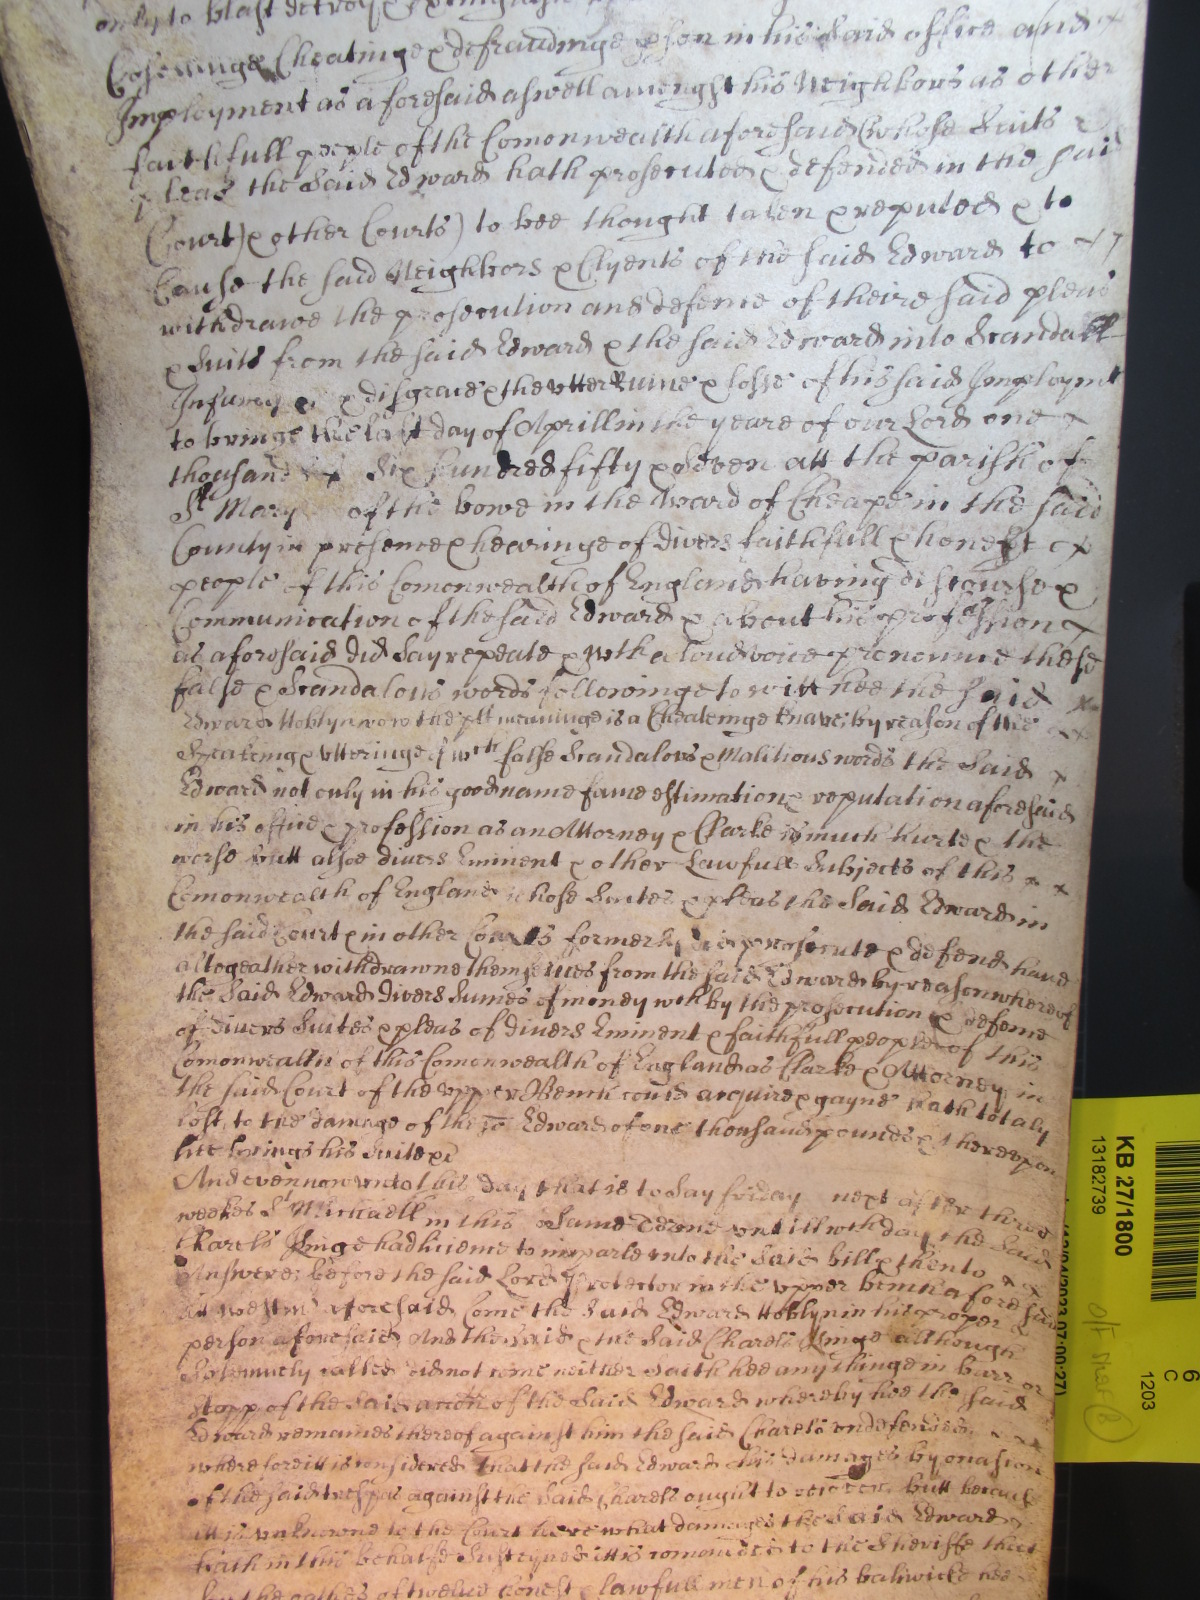 only to blast destroy & extinguish
Coseninge Cheatinge & defraudinge pson in his said office and
Imployment as aforesaid aswell amongst his Neighbors as other
faithfull people of the Comonwealth aforesaid (whose Suits &
pleas the Said Edward hath prosecuted & defended in the said
Court & other Courts) to bee thought taken & reputed & to
Cause the said Neighbors & Clyents of the said Edward to
withdrawe the prosecution and defence of theire said pleas
& Suits from the said Edward & the said Edward into Scandall
Infamy & disgrace & the utter Ruine & losse of his said Imploymt
to bringe the last day of Aprill in the yeare of our Lord one
thousand Six hundred fifty & Seven att the parish of
St Mary of the bowe in the Ward of Cheape in the said
County in presence & hearinge of divers faithfull & honest
people of this Comonwealth of England having discourse &
Communication of the said Edward & about his profession
as aforesaid did Say repeate & with a loud voice pronounce these
false & Scandalous words followinge to witt hee the Said
Edward Hoblyn now the plt meaninge is a Cheateinge Knave; by reason of the
Speakeing & Utteringe of wch false Scandalous & Malitious words the Said
Edward not only in his good name fame estimation & reputation aforesaid
in his office & profession as an Attorney & Clarke is much hurte & the
worse butt alsoe divers Eminent & other Lawfull Subjects of this
Comonwealth of England whose Suites & pleas the Said Edward in
the said Court & in other Courts formerly did prosecute & defend have
altogeather withdrawne themselves from the said Edward by reason whereof
the Said Edward divers Sumes of money wch by the prosecution & defence
of divers Suites & pleas of divers Eminent & faithfull people of this
Comonwealth of this Comonwealth of England as Clarke & Attorney in
the said Court of the upper Bench could acquire & gayne hath totaly
lost, to the damage of the sd Edward of one thousand pounds & thereupon
hee brings his Suite &c
And even now unto this day that is to Say friday next after three
weekes St Michaell in this Same Terme untill wch day the Said
Charels Kinge had licence to imparle unto the Said bill & then to
Answere; before the said Lord Protector in the upper bench aforesaid
att Westmr aforesaid Come the Said Edward Hoblyn in his proper
person aforesaid And the said & the Said Charels Kinge although
Solemnely called did not come neither Saith hee any thinge in barr or
stopp of the Said accon of the Said Edward whereby hee the said
Edward remaines thereof against him the said Charels undefended
wherefore itt is considered that the said Edward his damages by occasion
of the said trespas against the Said Charels ought to recover butt because
itt is unknowne to the Court here what damages the Said Edward
hath in this behalfe Susteyned itt is comanded to the Sheriffe that
by the oathes of twelve honest & lawfull men of his baliwicke hee
KB 27/1800
13182739
6
C
1203